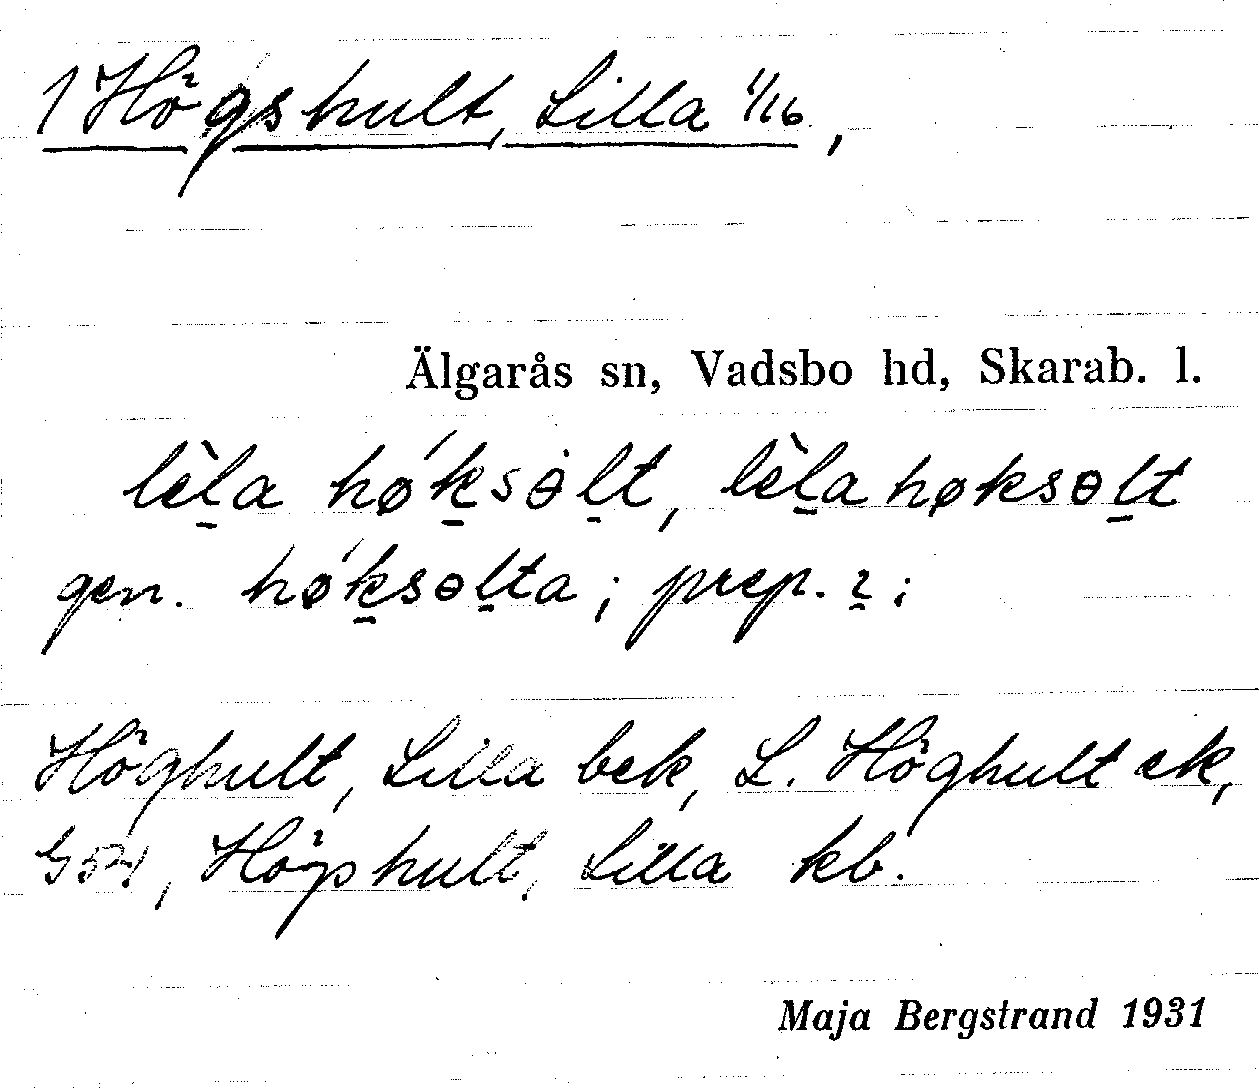 1 Högshult, Lilla 1/16,
Älgarås sn, Vadsbo hd, Skarab. l.
lèl̠a hǿk̠sɵl̠t, lèl̠ahøksɵl̠t
gen. hǿk̠sɵl̠ta ; prep. ɪ̠ ;
Höghult, Lilla bek, L. Höghult ek,
G54, Högshult, Lilla kb.
Maja Bergstrand 1931